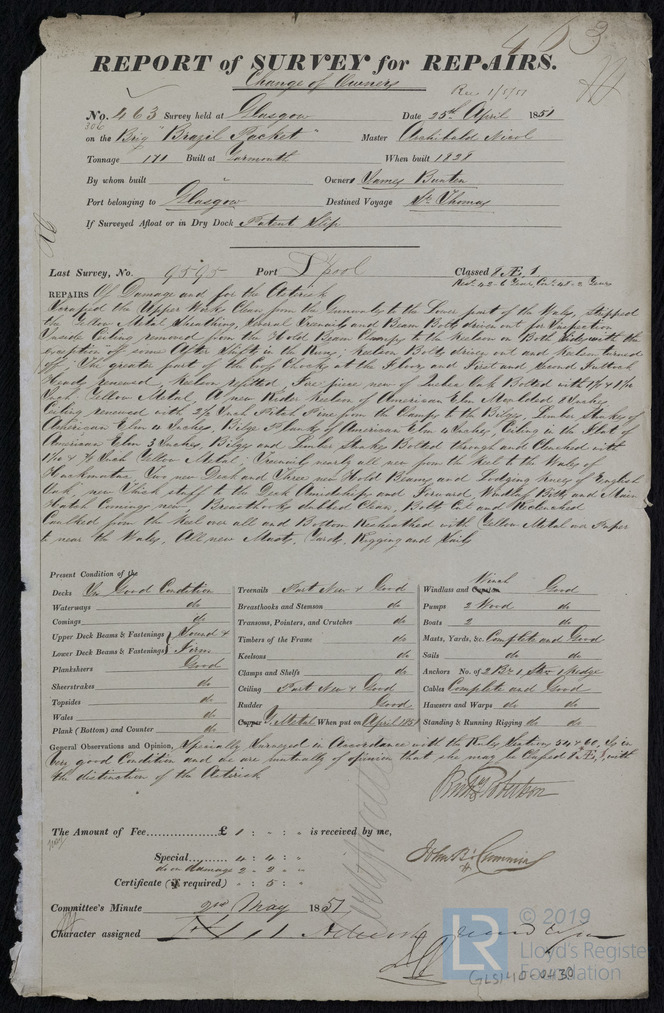 463
REPORT of SURVEY for REPAIRS.
Change of Owners
Rec 1/5/51
No. 463 Survey held at Glasgow Date 25th April 1851
306
on the Brig "Brazil Packet" Master Archibald Nicol
Tonnage 171 Built at Garmouth When built 1828
By whom built " Owner James Bunten
Port belonging to Glasgow Destined Voyage St Thomas
If Surveyed Afloat or in Dry Dock Patent Slip
Last Survey, No. 9595 Port L'pool Classed Æ 1
REPAIRS Of Damage and for the Asterisk
Scraped the Upper Works Clean from the Gunwale to the Lower part of the Wales, Stripped
the Yellow Metal Sheathing, Several Treenails and Beam Bolts driven out for Inspection
Inside Ceiling removed from the Hold Beam Clamps to the Keelson on Both Sides with the
exception of some After Shift in the Run; Keelson Bolts driven out and Keelson turned
off; The greater part of the Chocks at the Floor and First and Second Futtock
Heads renewed, Keelson refitted, Fore piece new of Oak Bolted with 1 1/8 & 1 1/16
Inch Yellow Metal, A new Rider Keelson of American Elm Moulded Inches
Ceiling renewed with 2 1/2 Inch Pitch Pine from the Clamps to the Bilges, Limber Strakes of
American Elm 4 Inches, Bilge Planks of American Elm 4 Inches, Ceiling in the Flat of
American Elm 3 Inches, Bilges and Limber Strakes Bolted through and Clenched with
Yellow Metal, Treenails nearly all new from the Keel to the Wales of
Hackmatac Two new Deck and Three new Hold Beams and Lodging Knees of English
Oak, new Thick stuff to the Deck Amidships and Forward, Windlass Bitts and Main
Hatch Comings new, Breasthooks dubbed Clean, Bolts Cut and Reclenched
Caulked from the Keel over all and Bottom Resheathed with Yellow Metal over Paper
to near the Wales, All new Masts, Yards, Rigging and Sails
Present Condition of the
Decks In Good Condition
Waterways do
Comings do
Upper Deck Beams & Fastenings Sound &
Lower Deck Beams & Fastenings Firm
Planksheers Good
Sheerstrakes do
Topsides do
Wales do
Plank (Bottom) and Counter do
Treenails Part New & Good
Breasthooks and Stemson do
Transoms, Pointers, and Crutches do
Timbers of the Frame do
Keelsons do
Clamps and Shelfs do
Ceiling Part New & Good
Rudder Good
Copper Y. Metal When put on April 1851
Winch
Windlass and Capstan Good
Pumps 2 Wood do
Boats 2 do
Masts, Yards, &c. Complete and Good
Sails do do
Anchors No. of 2 Br 1 Stm 1 Kedge
Cables Complete and Good
Hawsers and Warps do do
Standing & Running Rigging do do
General Observations and Opinion, Specially Surveyed in Accordance with the Rules Sections 54 & 60, Is in
Very good Condition and we are mutually of opinion that she may be Classed Æ 1 with
the distinction of the Asterisk
Robertson
The Amount of Fee £ 1 : " : " is received by me,
Special 4 : 4 : "
do on damage 2 : 2 : "
Certificate (if required) " : 5 : "
John Cumming
Committee's Minute 2nd May 1851
Character assigned
© 2019
LR
Lloyd's Register
Foundation
GLS140-0430